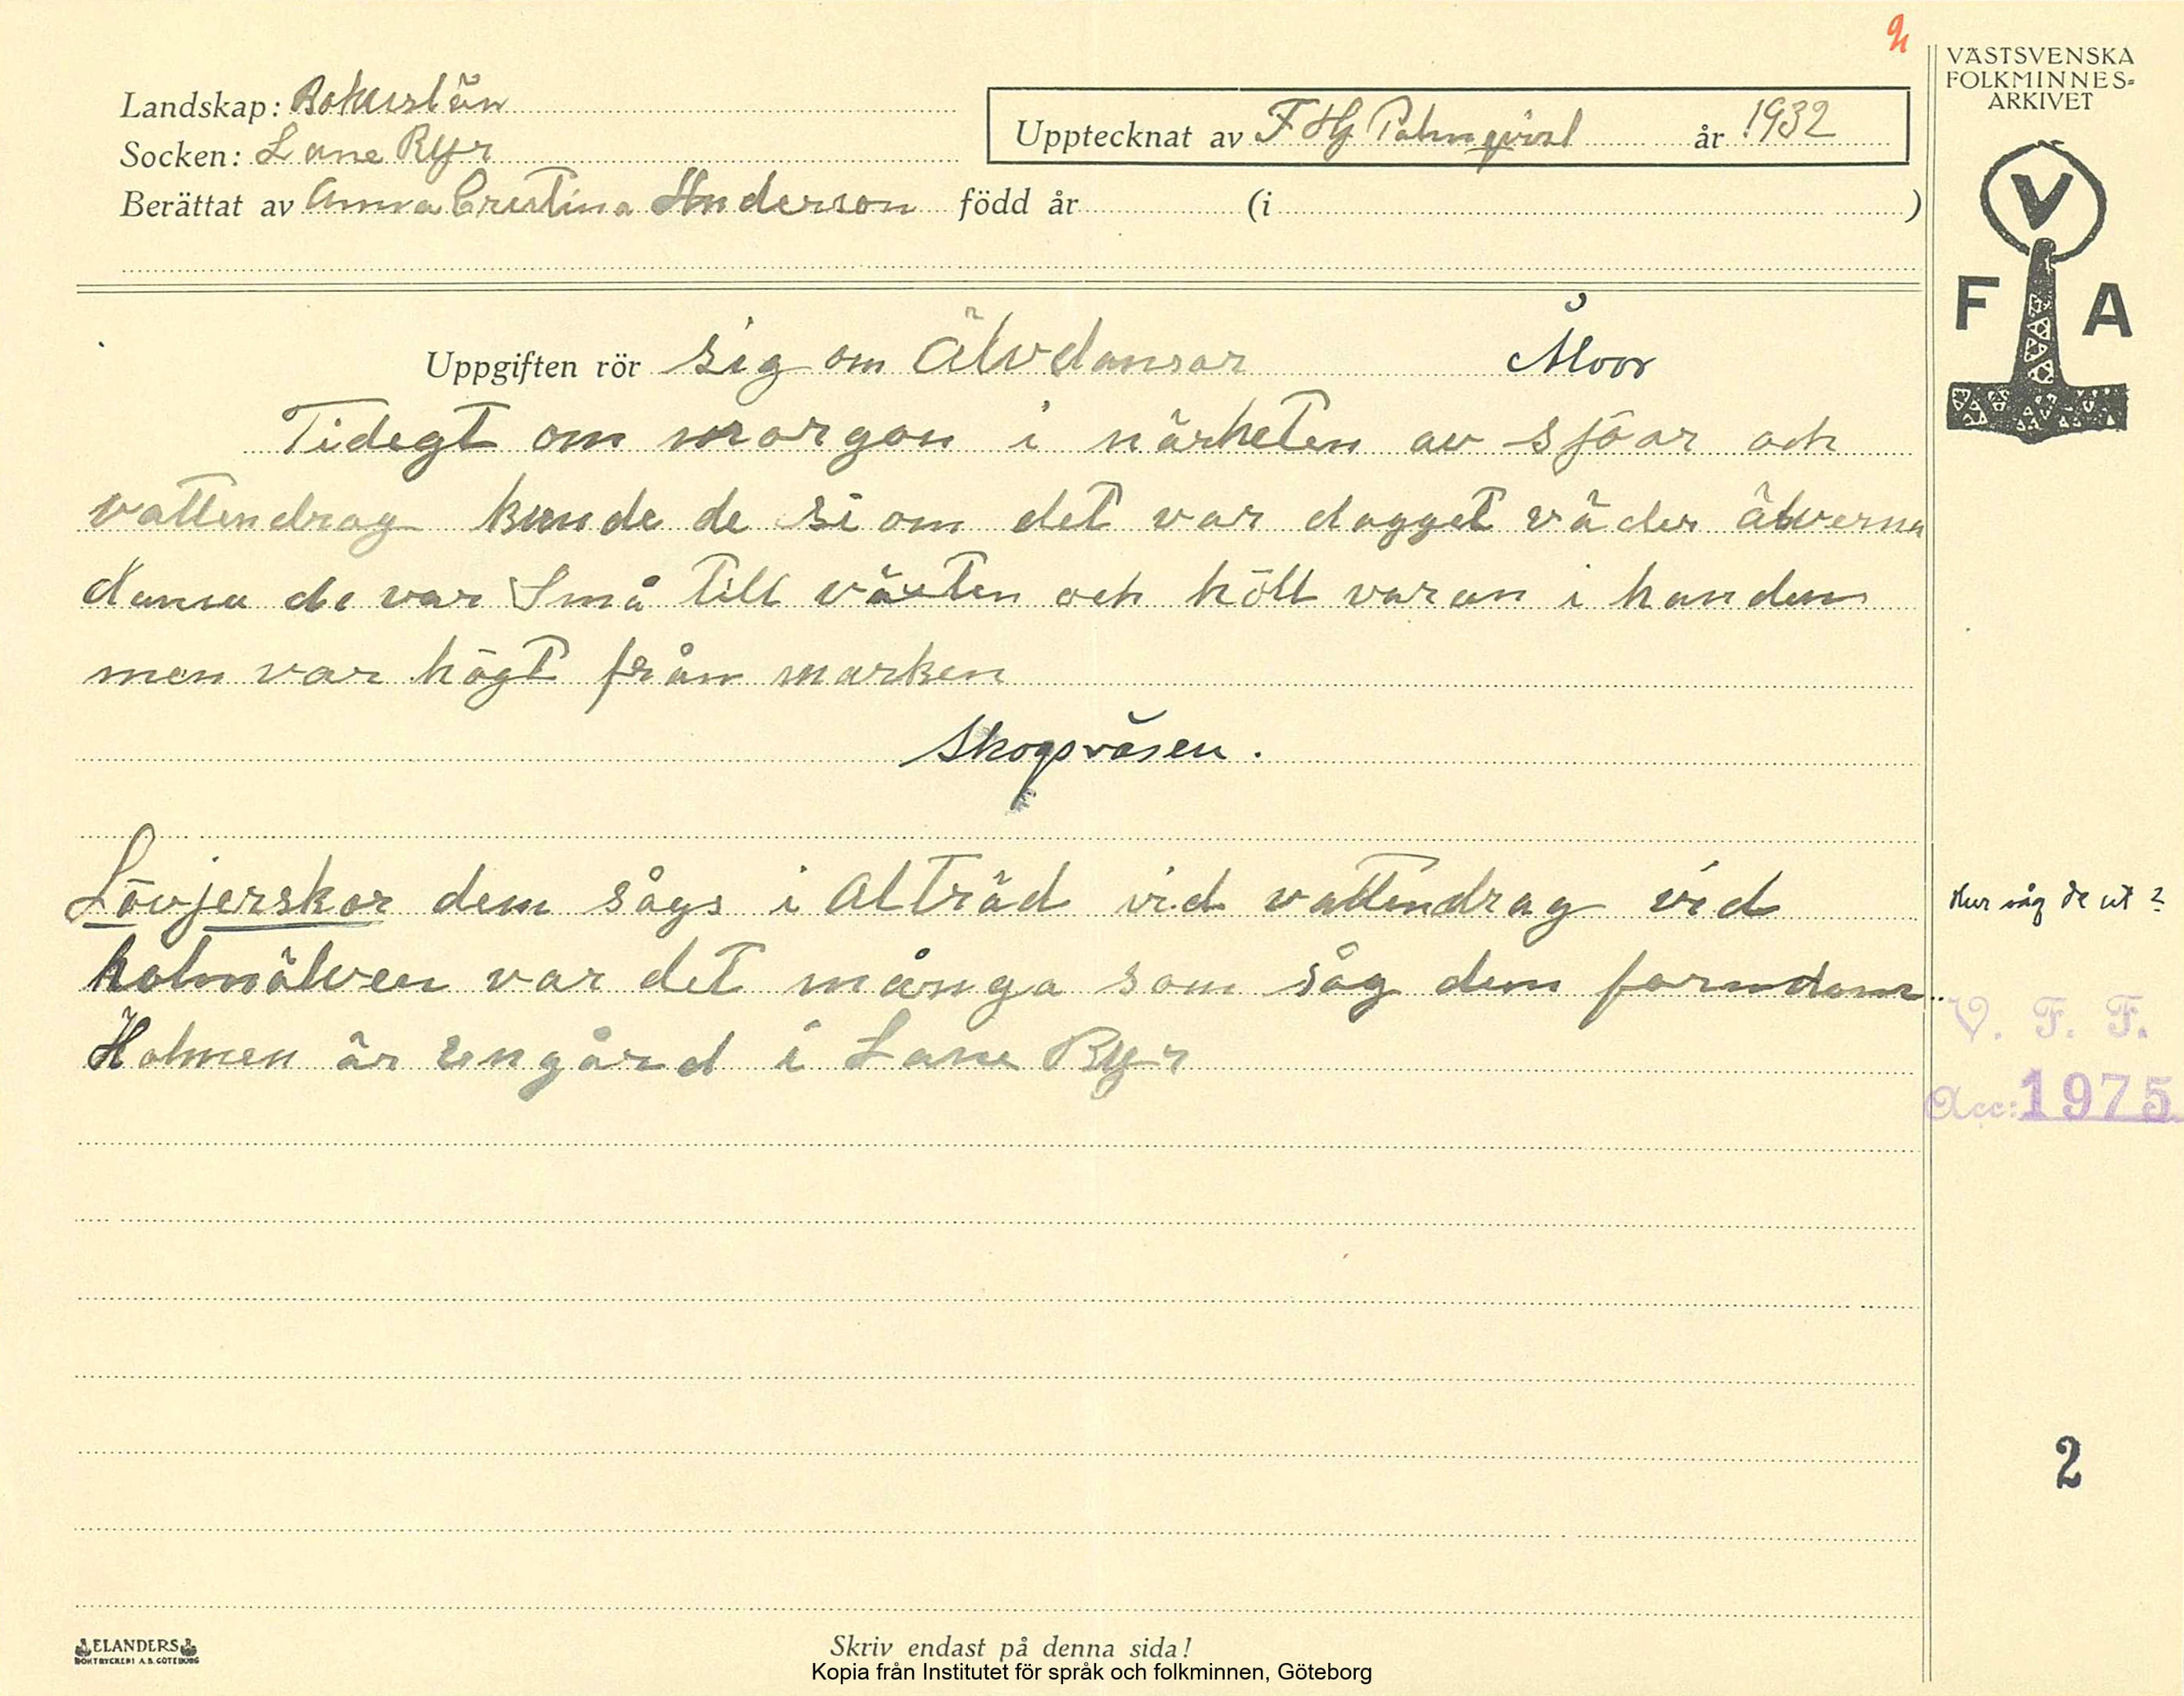 VÄSTSVENSKA
FOLKMINNES-
ARKIVET
Landskap: Bohuslän
Socken: Lane Ryr
Upptecknat av F Hj Palmqvist år 1932
Berättat av Anna Cristina Anderson född år (i )
V
F A
Uppgiften rör sig om Älvdansar
Tidegt om morgon i närheten av sjöar och
vattendrag kunde de si om det var dagget väder älverna
dansa de var Små till växten och höll varan i handen
men var högt från marken
Skogsväsen.
Lövjerskor dem sågs i Alträd vid vattendrag vid
Hur såg de ut?
holmälven var det många som såg dem forndoms
Holmen är engård i Lane Ryr
V. F. F.
Acc: 1975
2
ELANDERS
BOKTRYCKERI A.B. GÖTEBORG
Skriv endast på denna sida!
Kopia från Institutet för språk och folkminnen, Göteborg